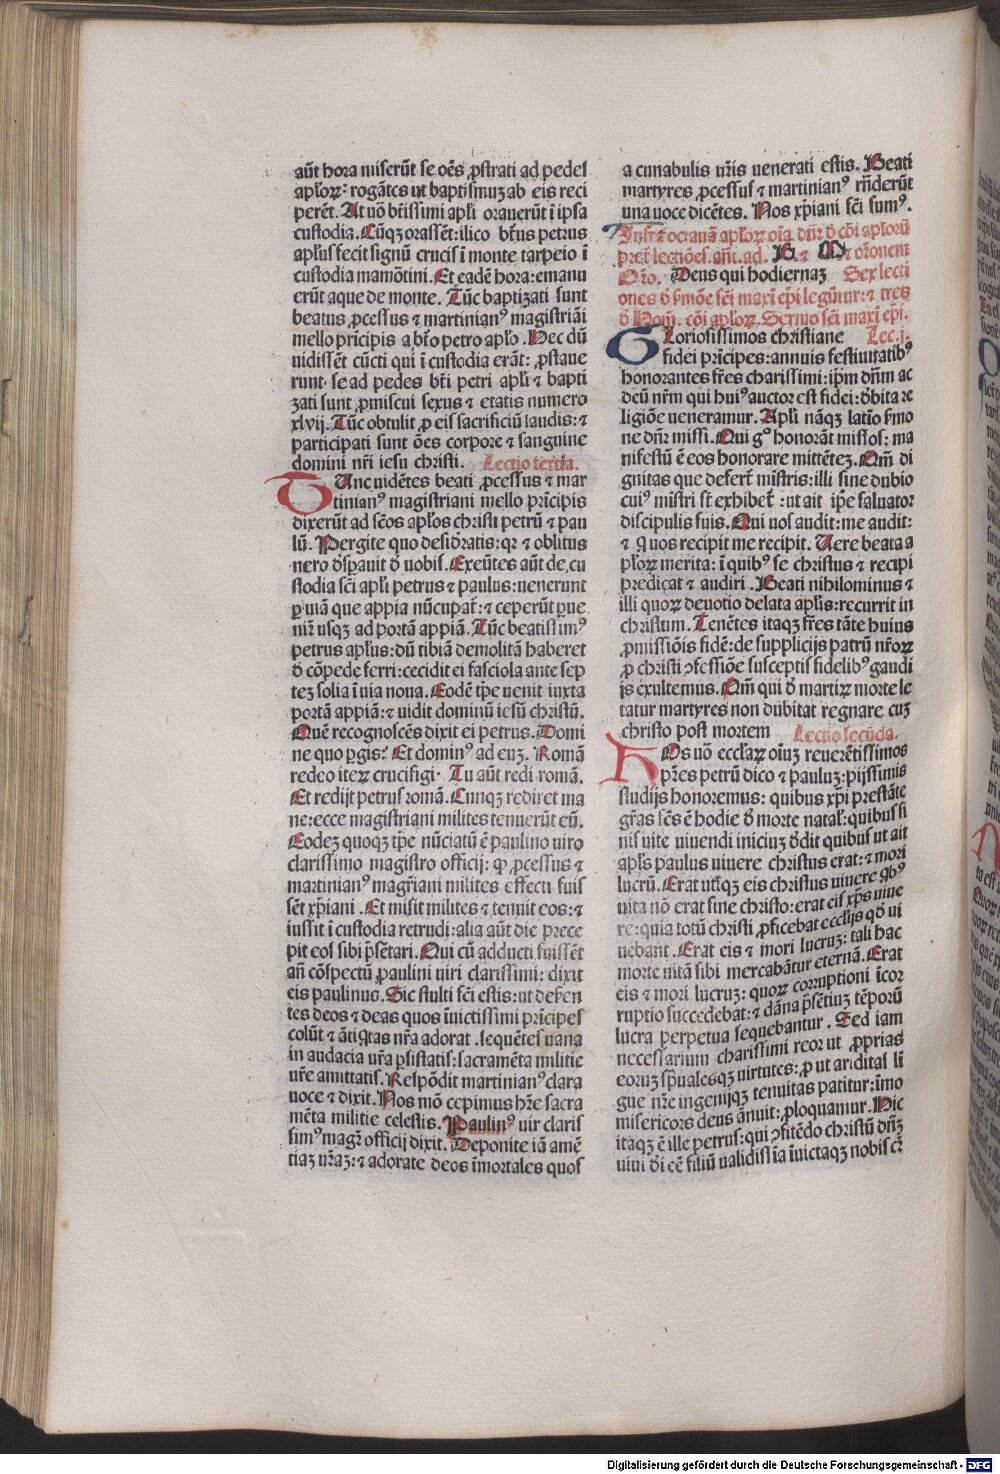 aūt hora miserūt se oēs ꝓstrati ad pedes
aplōꝝ: rogātes ut baptismuꝫ ab eis reci
perēt. At uō btīssimi apli orauerūt ī ipsa
custodia. Cūqꝫ orassēt: ilico btūs petrus
aplus fecit signū crucis ī monte tarpeio ī
custodia mamōtini. Et eadē hora: emanu
erūt aque de monte. Tūc baptizati sunt
beatus ꝓcessus ⁊ martinianꝰ magistriāi
mello prīcipis a btō petro aplo. Hec dū
uidissēt cūcti qui ī custodia erāt: ꝓstaue
runt se ad pedes btī petri apli ⁊ bapti
zati sunt ꝓmiscui sexus ⁊ etatis numero
xlvij. Tūc obtulit ꝓ eis sacrificiū laudis: ⁊
participati sunt ōes corpore ⁊ sanguine
domini nrī iesu christi. Lectio tertia.
TUnc uidētes beati ꝓcessus ⁊ mar
tinianꝰ magistriani mello prīcipis
dixerūt ad scōs aplōs christi petrū ⁊ pau
lū. Pergite quo desiđratis: qꝛ ⁊ oblitus
nero đspauit đ uobis. Exeūtes aūt de. cu
stodia scī apli petrus ⁊ paulus: uenerunt
ꝑ uiā que appia nūcupat̄: ⁊ ceperūt ꝑue
nir̄ usqꝫ ad portā appiā. Tūc beatissimꝰ
petrus aplus: dū tibiā demolitā haberet
đ cōpede ferri: cecidit ei fasciola ante sep
teꝫ solia ī uia noua. Eodē tp̄e uenit iuxta
portā appiā: ⁊ uidit dominū iesū christū.
Quē recognoscēs dixit ei petrus. Domi
ne quo ꝑgis? Et dominꝰ ad euꝫ. Romā
redeo iteꝝ crucifigi. Tu aūt redi romā.
Et redijt petrus romā. Cunqꝫ rediret ma
ne: ecce magistriani milites tenuerūt eū.
Eodeꝫ quoqꝫ tp̄e nūciatū ē paulino uiro
clarissimo magistro officij: ꝙ ꝓcessus ⁊
martinianꝰ magrīani milites effecti fuis
sēt xp̄iani. Et misit milites ⁊ tenuit eos: ⁊
iussit ī custodia retrudi: alia aūt die prece
pit eos sibi p̄sētari. Qui cū adducti fuissēt
an̄ cōspectū paulini uiri clarissimi: dixit
eis paulinus. Sic stulti fc̄i estis: ut defen
tes deos ⁊ deas quos īuictissimi prīcipes
colūt ⁊ āti qtas nrā adorat. sequētes uana
in audacia ur̄a ꝑsistatis: sacramēta militie
ur̄e amittatis. Respōdit martinianꝰ clara
uoce ⁊ dixit. Nos mō cepimus hr̄e sacra
mēta militie celestis. Paulinꝰ uir claris
simꝰ magr̄ officij dixit. Deponite iā amē
tiaꝫ ur̄aꝫ: ⁊ adorate deos īmortales quos
a cunabulis ur̄is uenerati estis. Beati
martyres ꝓcessus ⁊ martinianꝰ rn̄derūt
una uoce dicētes. Nos xp̄iani scī sumꝰ.
Infra octauā aplōꝝ oīa dn̄r đ cōi aplorū
pret̄ lectiōes. an̄t. ad. B. ⁊ M. ⁊ orōnem
Oro. Deus qui hodiernaꝫ Sex lecti
ones đ s̄mōe scī maxi ep̄i legūtur: ⁊ tres
đ Hom̄. cōi aplōꝝ. Sermo scī maxi ep̄i.
GLoriosissimos christiane Lec. j.
fidei prīcipes: annuis festiuitatibꝰ
honorantes fr̄es charissimi: ip̄m dn̄m ac
deū nr̄m qui huiꝰ auctor est fidei: đbita re
ligiōe ueneramur. Apli nāqꝫ latīo s̄mo
ne dn̄r missi. Qui gͦ honorāt missos: ma
nifestū ē eos honorare mittēteꝫ. Qm̄ di
gnitas que defert̄ mīstris: illi sine dubio
cuiꝰ mīstri st̄ exhibet̄: ut ait ip̄e saluator
discipulis suis. Qui uos audit: me audit:
⁊ q uos recipit me recipit. Uere beata a
plōꝝ merita: ī quibꝰ se christus ⁊ recipi
predicat ⁊ audiri. Beati nihilominus ⁊
illi quoꝝ deuotio delata aplīs: recurrit in
christum. Tenētes itaqꝫ fr̄es tāte huius
ꝓmissiōis fidē: de supplicijs patrū nr̄oꝝ
ꝓ christi ꝯfessiōe susceptis fidelibꝰ gaudi
js exultemus. Qm̄ qui đ martiꝝ morte le
tatur martyres non dubitat regnare cuꝫ
christo post mortem Lectio secūda.
HOs uō ecclīaꝝ oīuꝫ reuerētissimos
pr̄es petrū dico ⁊ pauluꝫ: pijssimis
studijs honoremus: quibus xp̄i prestāte
gr̄as scēs ē hodie đ morte natal̄: quibus si
nis uite uiuendi iniciuꝫ đdit quibus ut ait
apl̄s paulus uiuere christus erat: ⁊ mori
lucrū. Erat utiqꝫ eis christus uiuere qbꝰ
uita nō erat sine christo: erat eis xp̄s uiue
re: quia totū christi ꝓficebat ecclījs qđ ui
uebant. Erat eis ⁊ mori lucruꝫ: tali hac
morte uitā sibi mercabātur eternā. Erat
eis ⁊ mori lucruꝫ: quoꝝ corruptioni īcor
ruptio succedebat: ⁊ dāna p̄sētiuꝫ tēporū
lucra perpetua sequebantur. Sed iam
necessarium charissimi reor ut ꝓprias
eoruꝫ sp̄ualesqꝫ uirtutes: ꝓ ut ariditas lī
gue nr̄e ingenijqꝫ tenuitas patitur: īmo
misericors deus ānuit: ꝓloquamur. Hic
itaqꝫ ē ille petrus: qui ꝯfitēdo christū dn̄ꝫ
uiui đi eē filiū ualidissīa īuictaqꝫ nobis cr̄
Digitalisierung gefördert durch die Deutsche Forschungsgemeinschaft - DFG